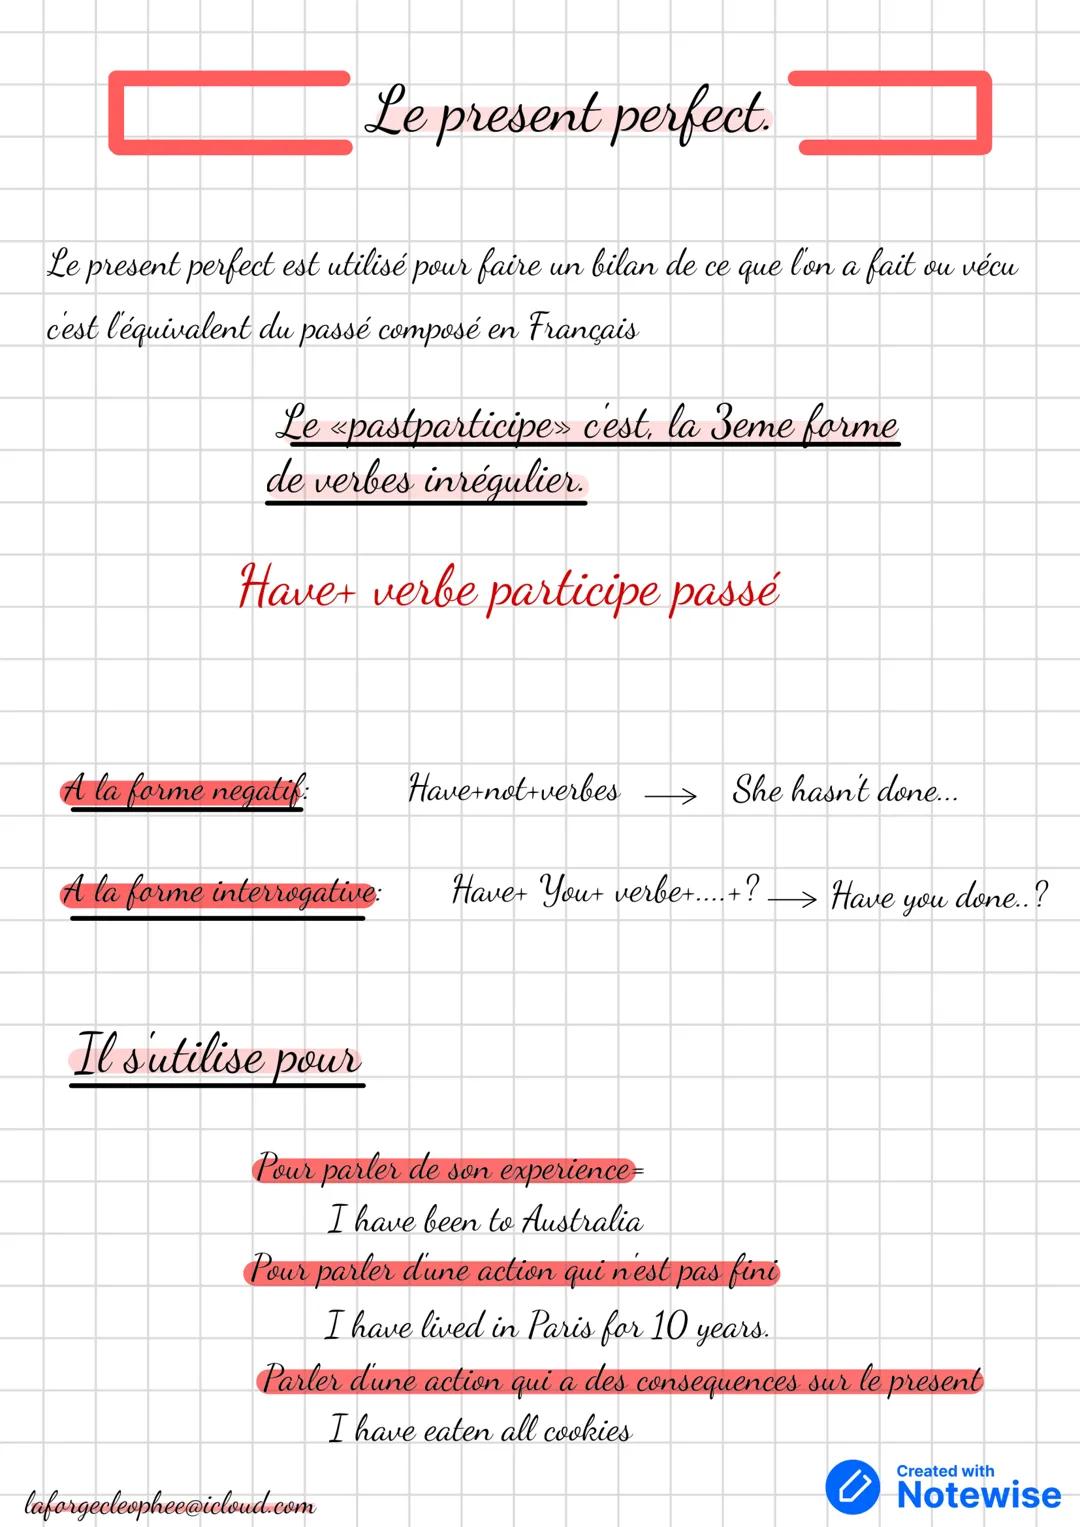 Le present perfect.
Le present perfect est utilisé pour faire un bilan de ce que l'on a fait ou vécu
c'est l'équivalent du passé composé en Français
Le «pastparticipe» c'est, la 3eme forme
de verbes inrégulier.
Have+ verbe participe passé
A la forme negatif: Have+not+verbes → She hasn't done...
A la forme interrogative: Have+ You+ verbe+....+? → Have you done..?
Il s'utilise pour
Pour parler de son experience=
I have been to Australia
Pour parler d'une action qui n'est pas fini
I have lived in Paris for 10 years.
Parler d'une action qui a des consequences sur le present
I have eaten all cookies
laforgecleophee@icloud.com
Created with
Notewise